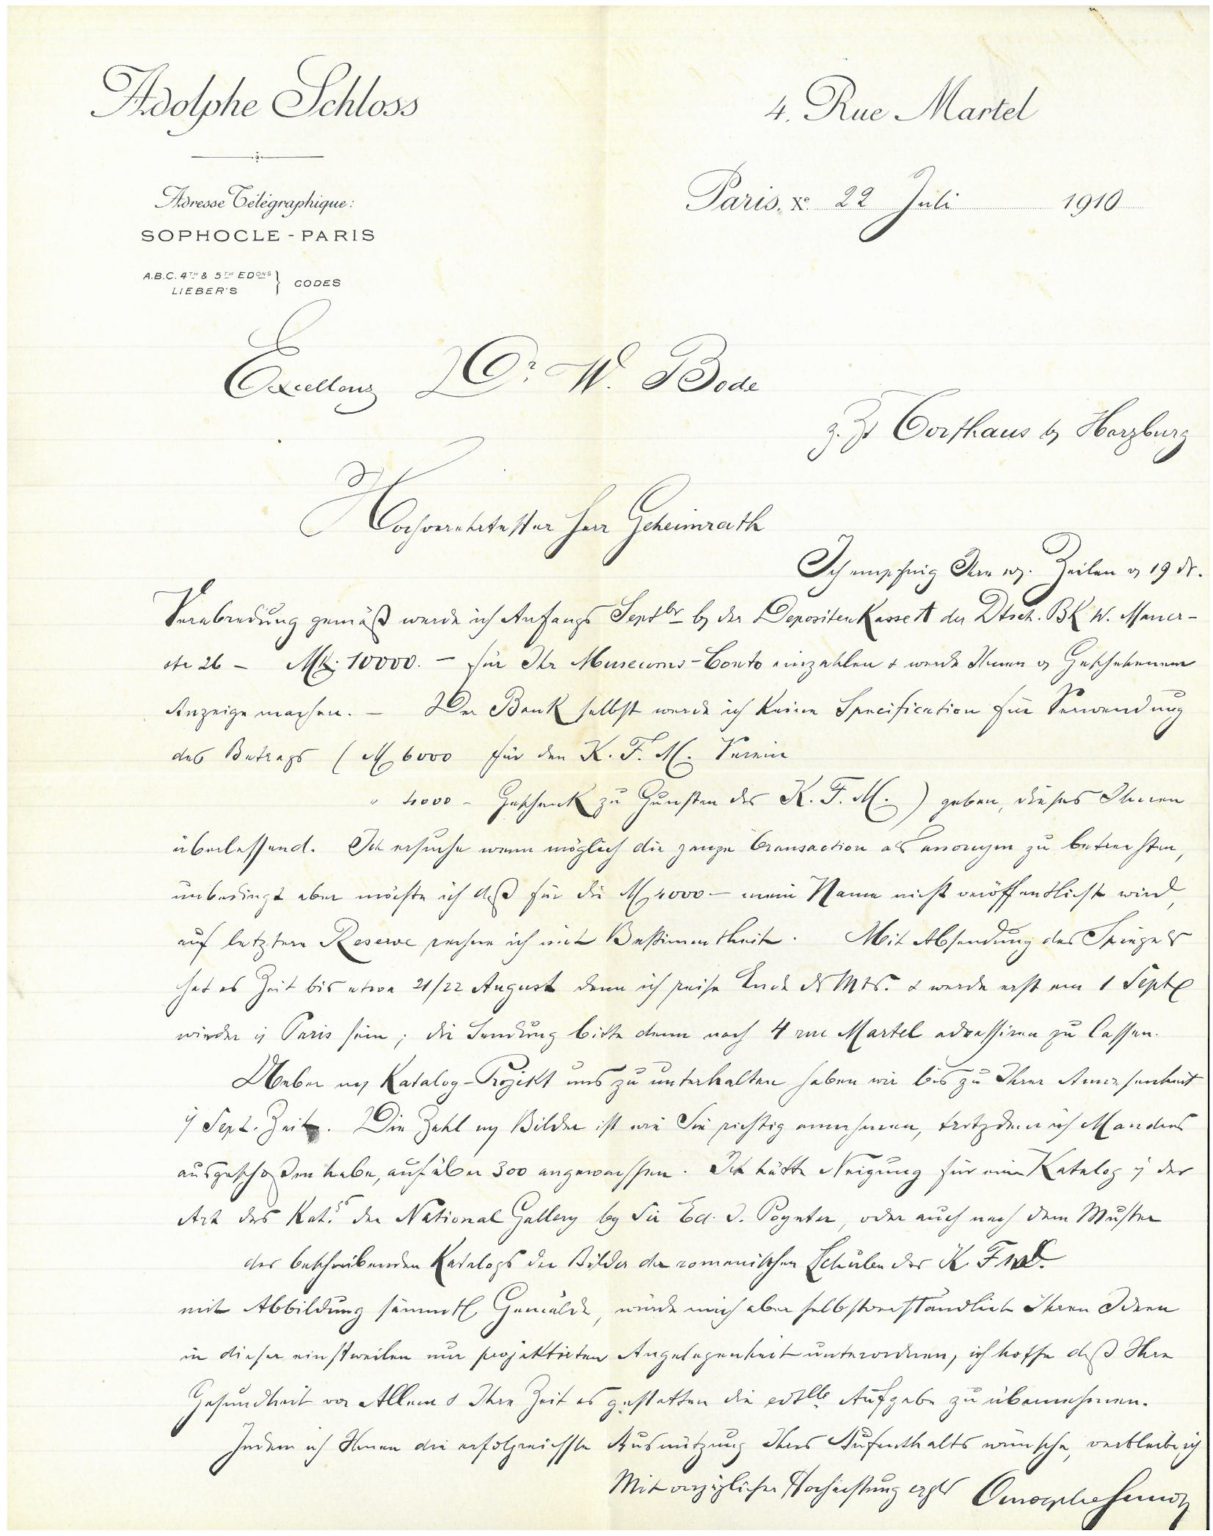 Adolphe Schloss
4. Rue Martel
Adresse Télégraphique:
SOPHOCLE - PARIS
Paris, Xe 22 Juli 1910
A.B.C. 4TH & 5TH EDONS
LIEBER'S } CODES
Excellenz Dr. W. Bode
z. Zt Torfhaus b/ Harzburg
Hochverehrtester Herr Geheimrath
Ich empfing Ihre Zeilen v 19 ds.
Verabredung gemäß werde ich Anfangs Septbr b/ der Depositenkasse A der Dtsch. BK W. Mauer-
str 26 – Mk. 10000. – für Ihr Museums-Conto einzahlen & werde Ihnen v Geschehenem
Anzeige machen. – Der Bank selbst werde ich keine Specification für Verwendung
des Betrags ( M 6000 für den K. F. M. Verein
" 4000 – Geschenk zu Gunsten des K. F. M. ) geben, dieses Ihnen
überlassend. Ich ersuche wenn möglich die ganze Transaction als anonym zu betrachten,
unbedingt aber möchte ich daß für die M 4000 – mein Name nicht veröffentlicht wird,
auf letztere Reserve rechne ich mit Bestimmtheit. Mit Absendung des Spiegels
hat es Zeit bis etwa 21/22 August denn ich reise Ende ds Mts. & werde erst am 1 Sept
wieder i/ Paris sein; die Sendung bitte dann nach 4 rue Martel adressiren zu lassen.
Ueber m/ Katalog-Projekt uns zu unterhalten haben wir bis zu Ihrer Anwesenheit
i/ Sept. Zeit. Die Zahl m/ Bilder ist wie Sie richtig annehmen, trotzdem ich Manches
ausgeschoßen habe, auf über 300 angewachsen. Ich hätte Neigung für einen Katalog i/ der
Art des Kat.s der National Gallery by Sir Ed. J. Poynter, oder auch nach dem Muster
des beschreibenden Katalogs der Bilder der romanischen Schulen des K F
mit Abbildung sämmtl Gemälde, würde mich aber selbstverständlich Ihren Ideen
in dieser einstweilen nur projektirten Angelegenheit unterordnen, ich hoffe daß Ihre
Gesundheit vor Allem & Ihre Zeit es gestatten die Aufgabe zu übernehmen.
Indem ich Ihnen die erfolgreichste Ausnützung Ihres Aufenthalts wünsche, verbleibe ich
Mit vorzüglicher Hochachtung Adolphe Schloss